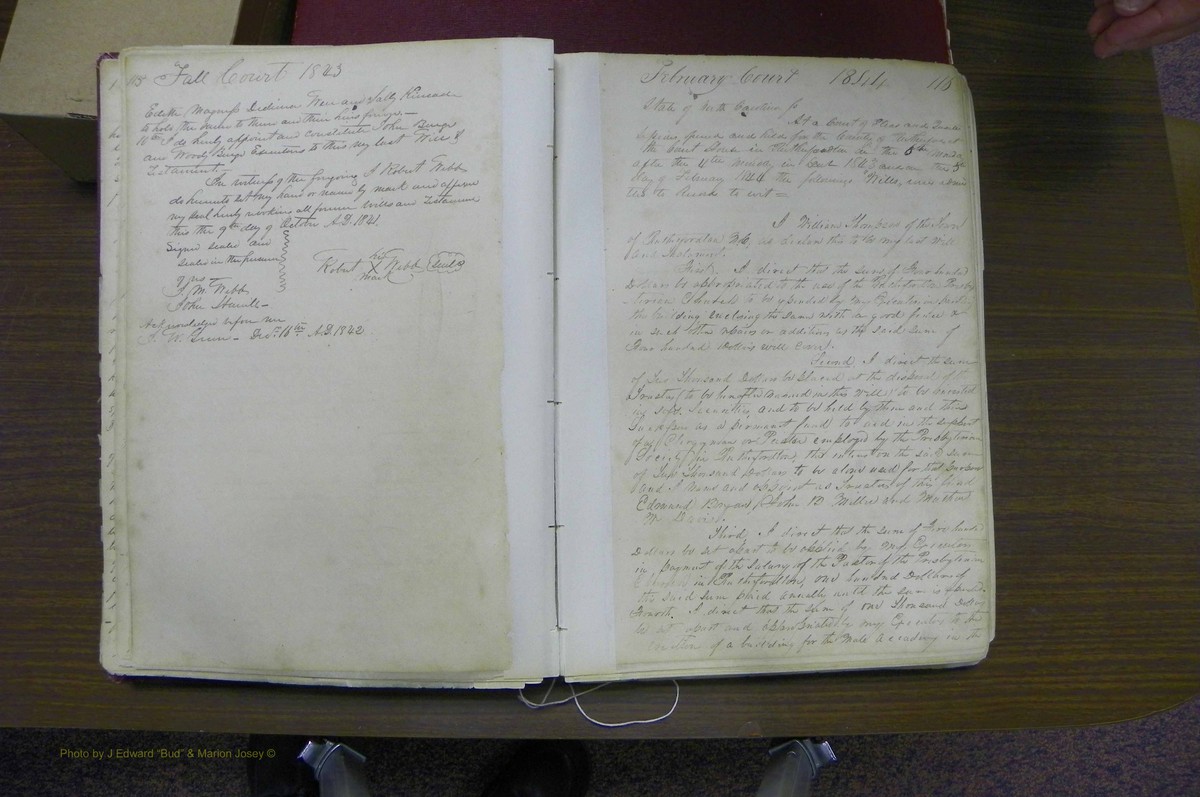 118 Fall Court 1843
Edith Magness Derdinia Weir and Sally Kinsade
to hold the same to them and their heirs forever—
10th I do hereby appoint and constitute John Burge
and Woody Burge Executors to this my last Will &
Testament.—
In witness of the foregoing I Robert Webb
do hereunto set my hand or name by mark and affixed
my seal hereby revoking all former wills and Testaments
this the 9th day of October A.D. 1841.
Signed sealed and
sealed in the presence
of us
J. M. Webb
John
Robert his X mark Webb (seal)
Acknowledged before me
A. W. — Dec. 16th A.D. 1842
February Court 1844 118
State of North Carolina
At a Court of Pleas and Quarter
Sessions, opened and held for the County of Rutherford at
the Court House in Rutherfordton on the 8th Monday
after the 4th Monday in 1843 and on this 5th
day of February 1844 the following Wills, were admit
ted to Record to wit =
I William Thompson of the Town
of Rutherfordton N.C. do declare this to be my last Will
and Testament.
First. I direct that the sum of Four hundred
Dollars be appropriated to the use of the Rutherfordton Presby
terian Church to be expended by my Executor in
the building enclosing the same with a good fence or
in such other repairs or addition as the said sum of
Four hundred Dollars will cover.
Second I direct the sum
of Two Thousand Dollars be placed at the disposal of the
Trustees (to be hereafter named in this will) to be invested
in safe Securities, and to be held by them and their
Successors as a permanent fund to aid in the support
of a Clergyman or Pastor employed by the Presbyterian
Society in Rutherfordton, the interest on the said sum
of Two Thousand Dollars to be alone used for that purpose
and I name and appoint as Trustees of this fund
Edmund Bryan John D Willie and
M.
Third, I direct that the sum of Five hundred
Dollars be set apart to be applied by my Executor
in payment of the Salary of the Pastor of the Presbyterian
Church in Rutherfordton, one hundred Dollars of
the said sum paid annually until the sum is expended.
Fourth. I direct that the sum of one Thousand Dollars
be set apart and appropriated by my Executor to the
erection of a building for the Male Academy in the
Photo by J Edward "Bud" & Marion Josey ©